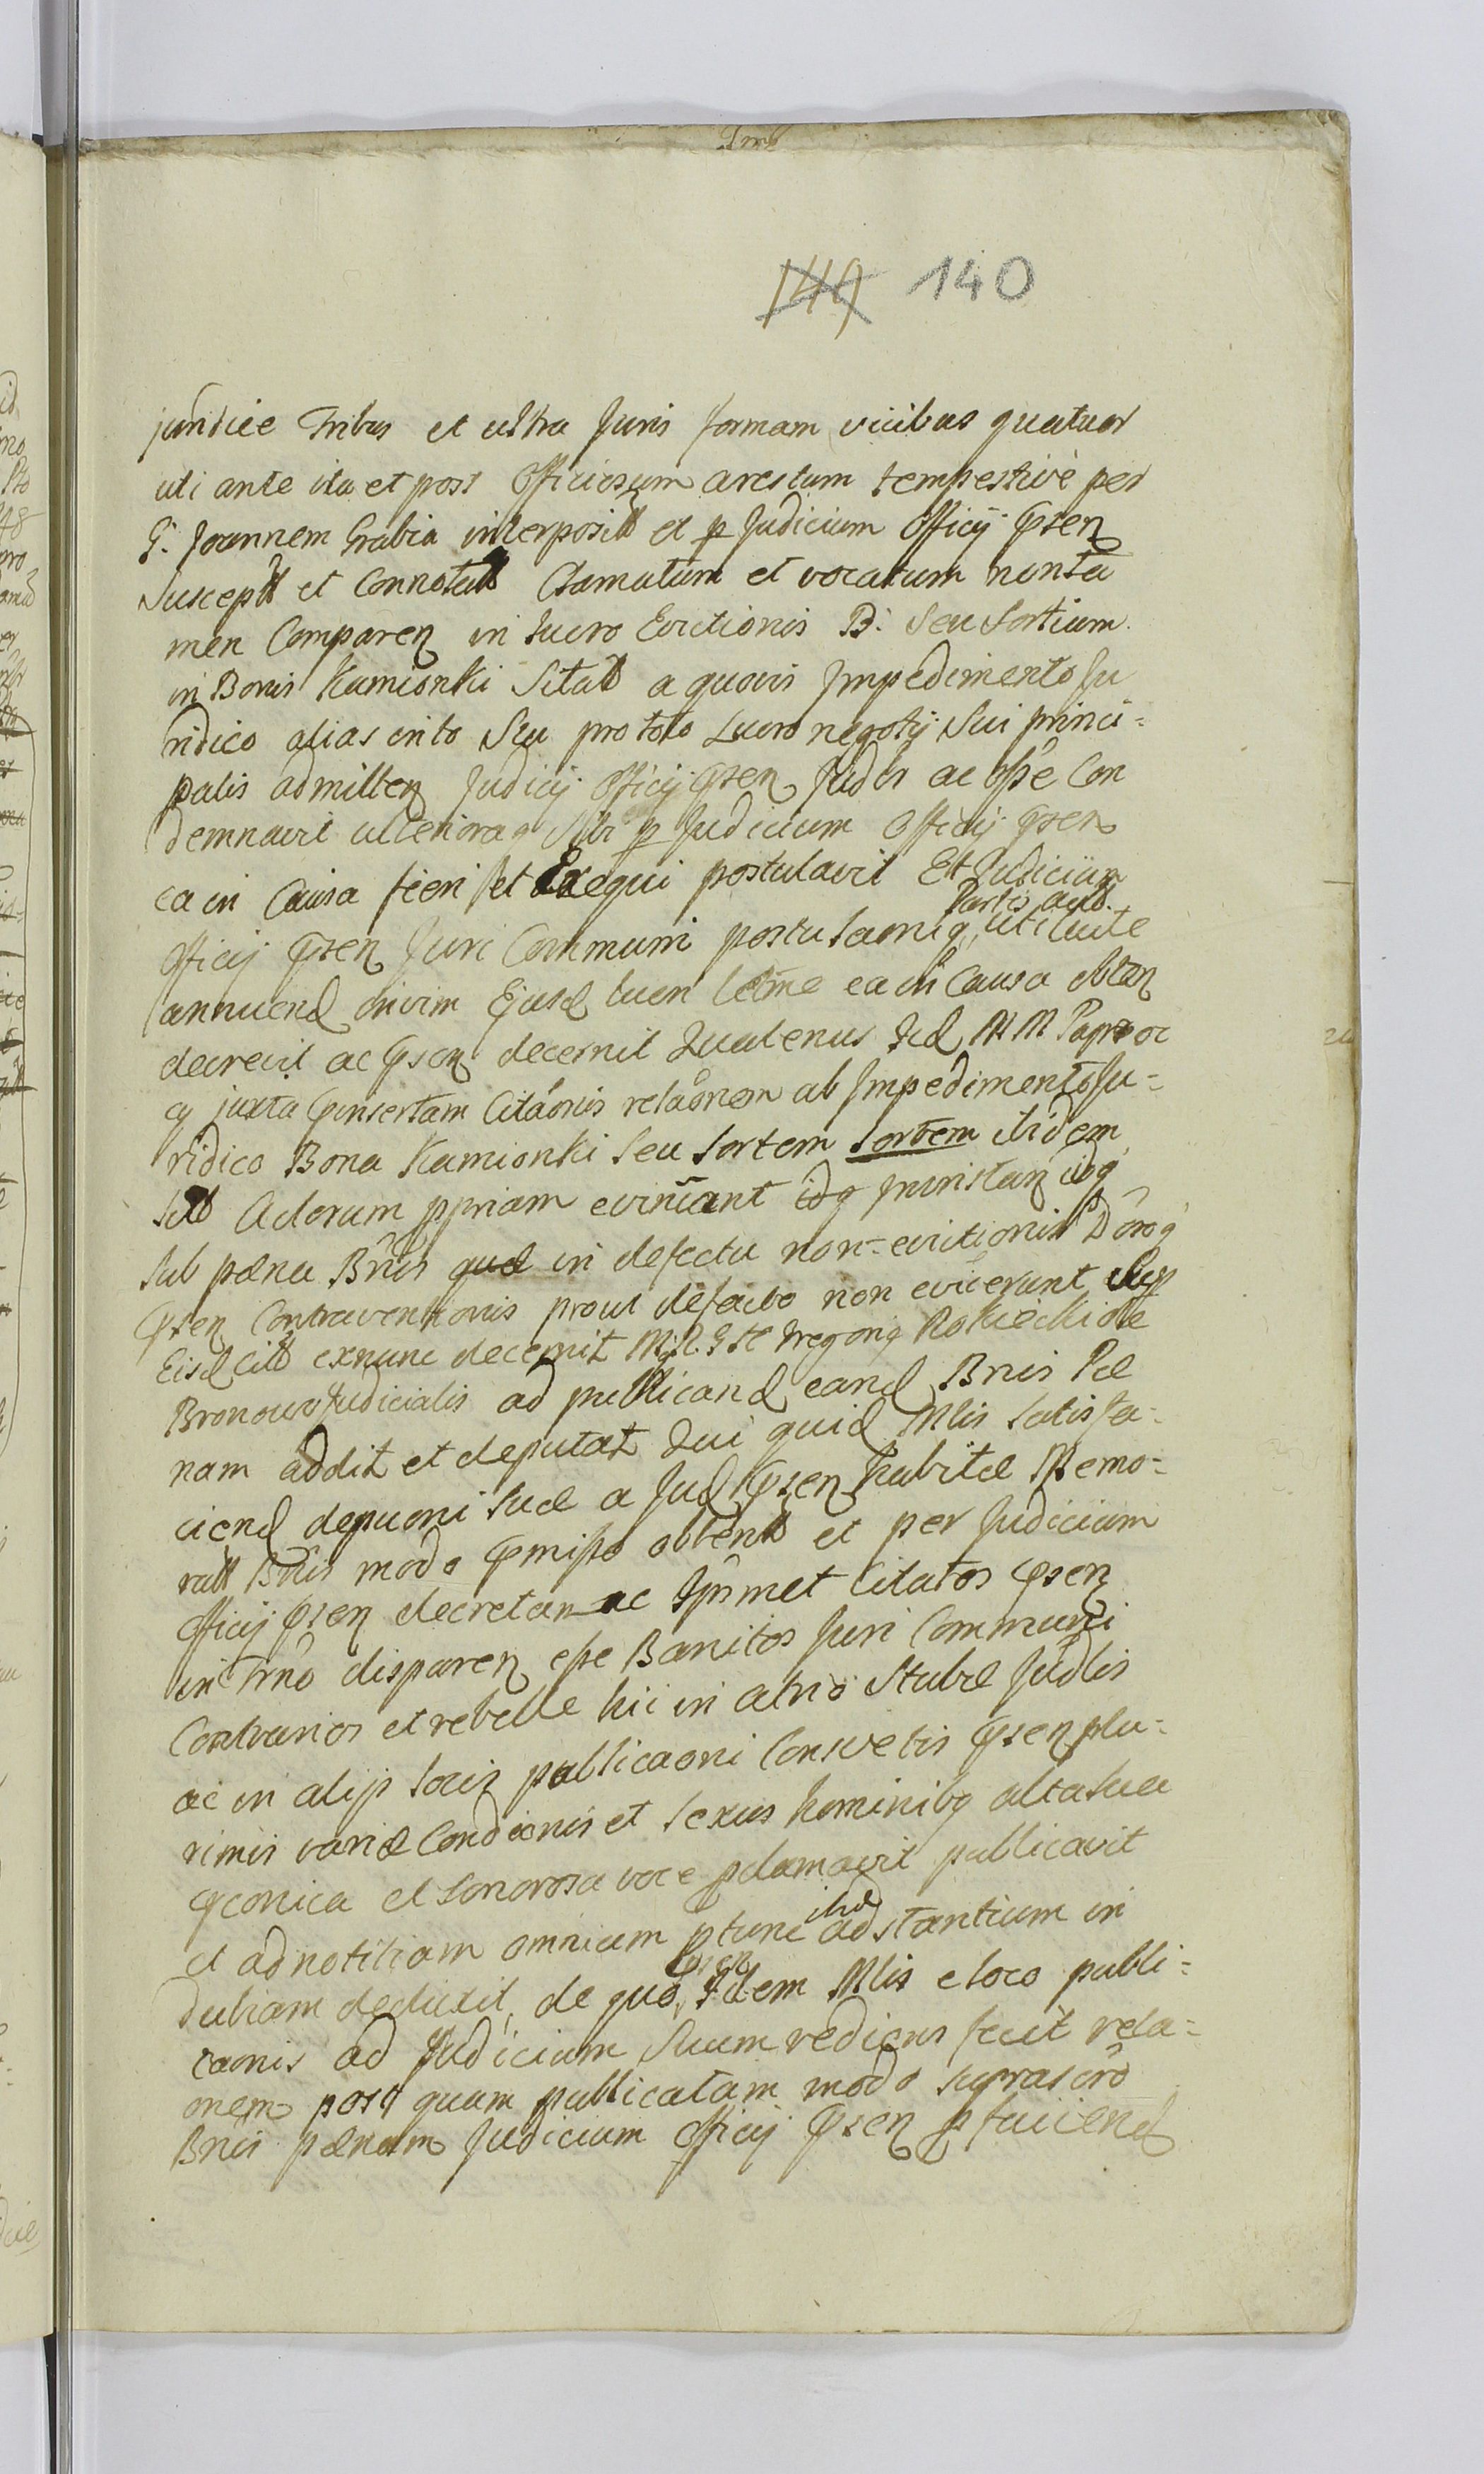 149 140
juridice tribus et ultra Juris formam vicibus quatuor
uti ante ita et post Officiosum arestum tempestivè per
G. Joannem Grabia interposit et p Judicium Officij Prsen
Suscept et Connotat Clamatum et vocatum nonta
men Comparen in lucro Evictionis B: Seu Sortium
in Bonis Kamionki Sitat a quovis Jmpedimento Ju
ridico alias into Seu pro toto Lucro negotij Sui princi-
palis admitten Judicij Officij Prsen Judlr ac Coñ
demnavit ulterioraq Sibi p Judicium Officij Prsen
ea in Causa fieri et Exequi postulavit Et Judicium
Officij Prsen Juri Communi postulaoniq Partis act. uti iuste
annuend Ejusd lucri ea in Causa obten
decrevit ac Prsen decernit Quatenus MM Paproc
cy juxta Prinsertam Citaonis relaonem ab Jmpedimento Ju-
ridico Bona Kamionki Seu Sortem Sortem ibidem
Sit Actorum ppriam evincant idq
Sub pæna Bnis in defectu non-evitionis
Prsen Contraventionis prout de facto non evicerunt
Eisd Cit exnunc decernit Gregoriq Rokicki
Judicialis ad publicand eand Bnis Pæ
nam addit et deputat Qui quid Mlis Satisfa-
ciend depuoni Suæ a Jud Prsen habitæ Memo-
rat Bnis modo Prmisso obtent et per Judicium
Officij Prsen decretam ac Jpsmet Citatos Prsen
in Trno disparen esse Banitos Juri Communi
Contrarios et rebelle hic in atrio Stubæ Judlis
ac in alijs locis publicaoni Consvetis Prsen plu-
rimis variæ Condionis et Sexus hominibq alta sua
Prconica et Sonorosa voce pclamavit publicavit
et ad notitiam omnium ptunc ibid adstantium in
dubiam deduxit, de quo Prsen Jdem Mlis e loco publi-
caonis ad Judicium Suum rediens fecit rela-
onem post quam publicatam modo suprascro
Bnis pænam Judicium Officij Prsen